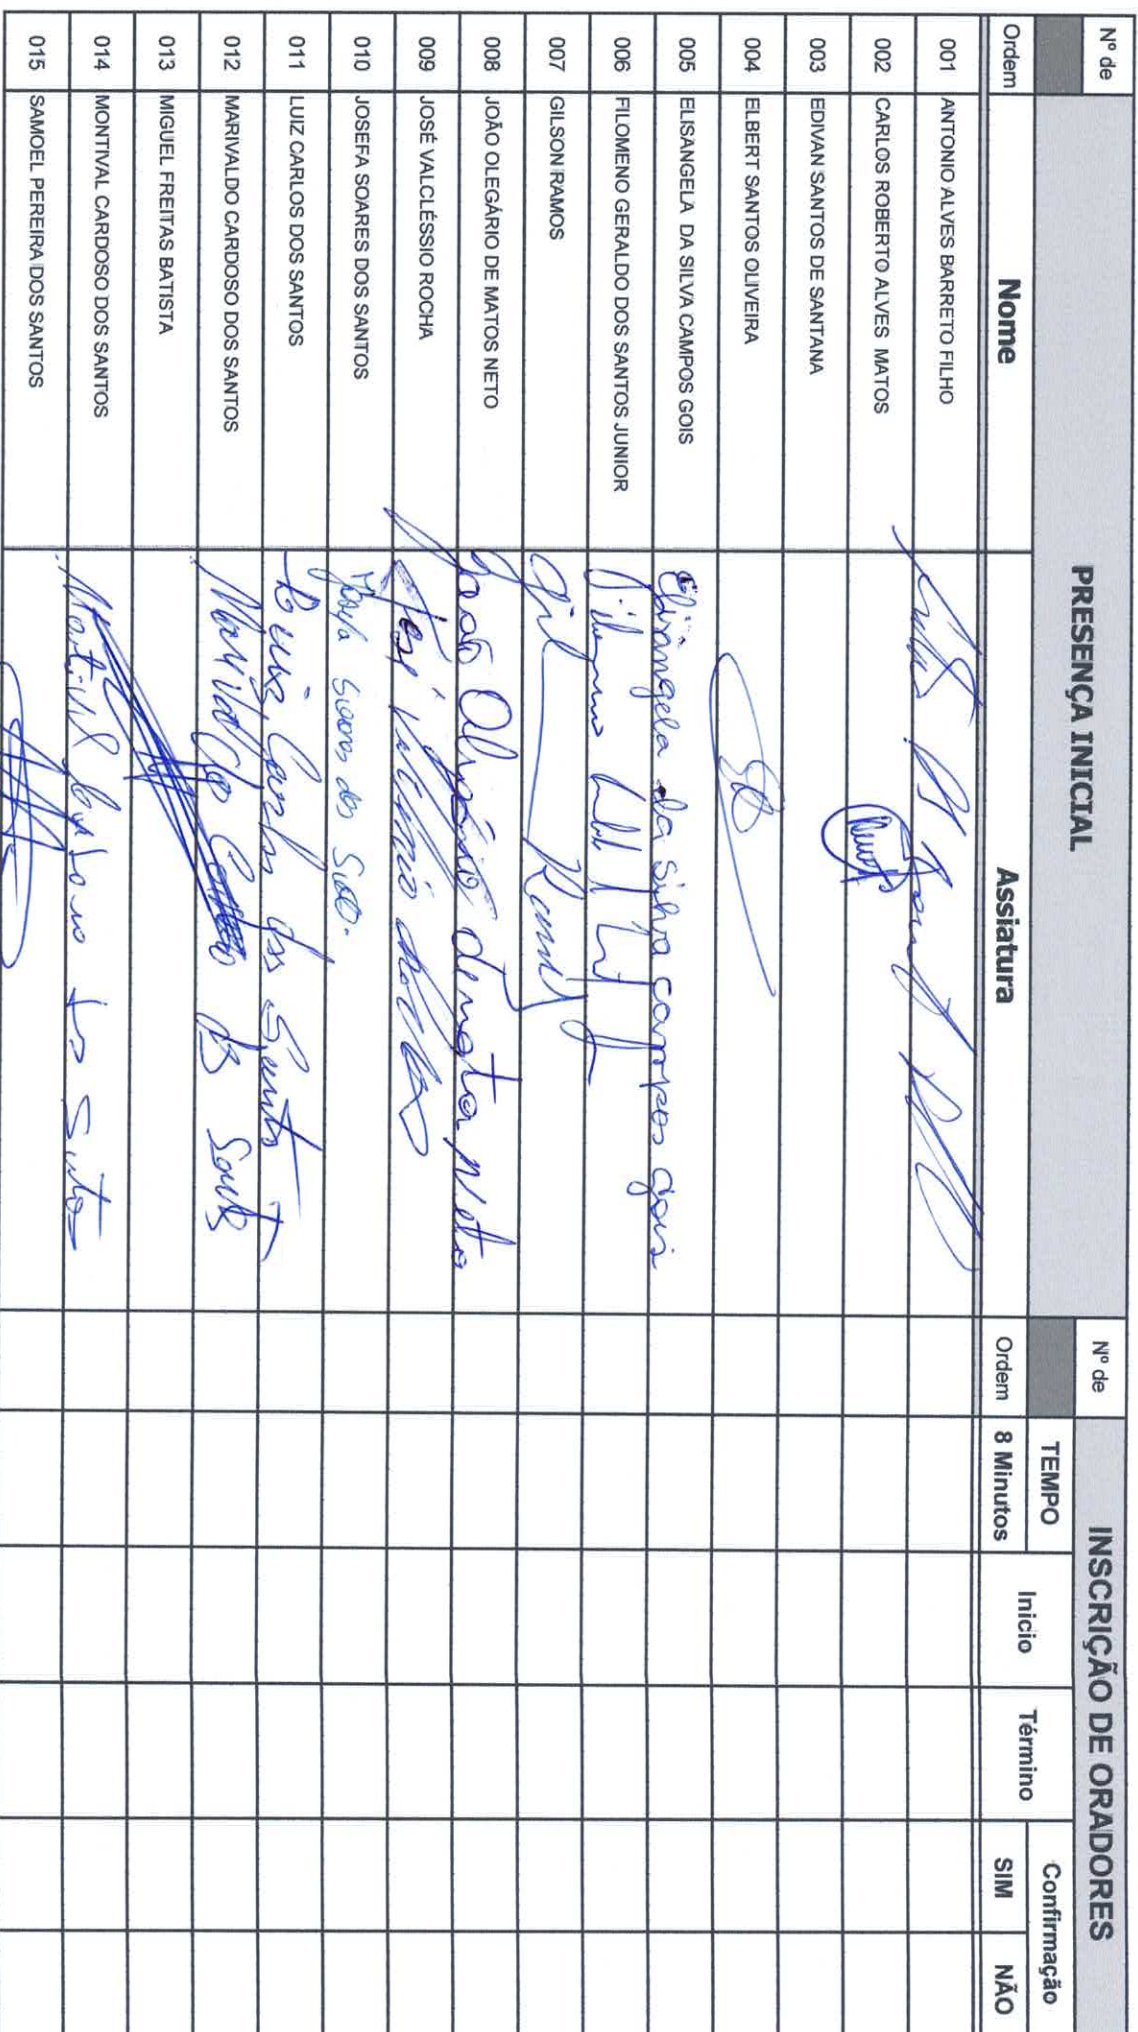 Nº de PRESENÇA INICIAL Nº de INSCRIÇÃO DE ORADORES
Ordem Nome Assiatura Ordem TEMPO 8 Minutos Inicio Término Confirmação SIM NÃO
001 ANTONIO ALVES BARRETO FILHO
002 CARLOS ROBERTO ALVES MATOS
003 EDIVAN SANTOS DE SANTANA
004 ELBERT SANTOS OLIVEIRA
005 ELISANGELA DA SILVA CAMPOS GOIS Elisangela da Silva campos gois
006 FILOMENO GERALDO DOS SANTOS JUNIOR
007 GILSON RAMOS
008 JOÃO OLEGÁRIO DE MATOS NETO João Olegário de mato Neto
009 JOSÉ VALCLÉSSIO ROCHA José
010 JOSEFA SOARES DOS SANTOS Josefa Soares dos
011 LUIZ CARLOS DOS SANTOS Luiz Carlos dos Santos
012 MARIVALDO CARDOSO DOS SANTOS Marivaldo
013 MIGUEL FREITAS BATISTA
014 MONTIVAL CARDOSO DOS SANTOS Montival
015 SAMOEL PEREIRA DOS SANTOS